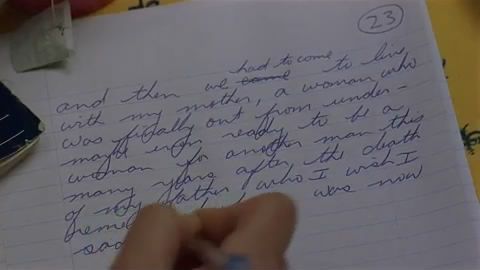 23
had to come
and then we came to live
with my mother, a woman who
was finally out from under-
maybe even ready to be a
woman for another man this
many years after the death
of my father, who I wish I
was now